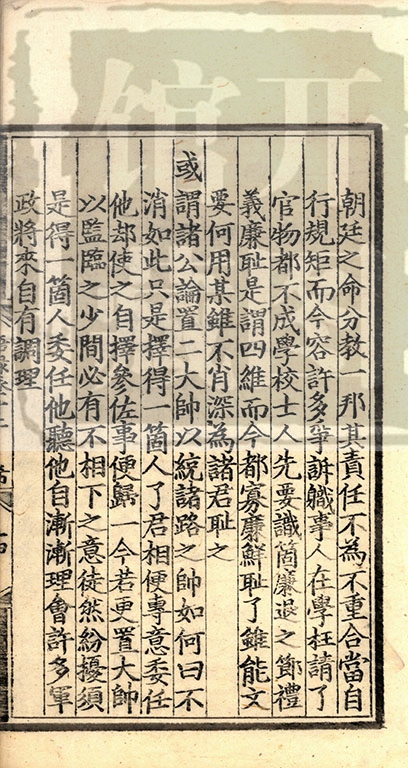 朝廷之命分教一邦其責任不為不重合當自
行規矩而今容許多爭訴軄事人在學枉請了
官物都不成學校士人先要識箇廉退之節禮
義廉耻是謂四維而今都寡廉鮮耻了雖能文
要何用某雖不肖深為諸君耻之
或謂諸公論置二大帥以統諸路之帥如何曰不
消如此只是擇得一箇人了君相便專意委任
他却使之自擇參佐事便歸一今若更置大帥
以監臨之少間必有不相下之意徒然紛擾須
是得一箇人委任他聽他自漸漸理會許多軍
政將來自有調理